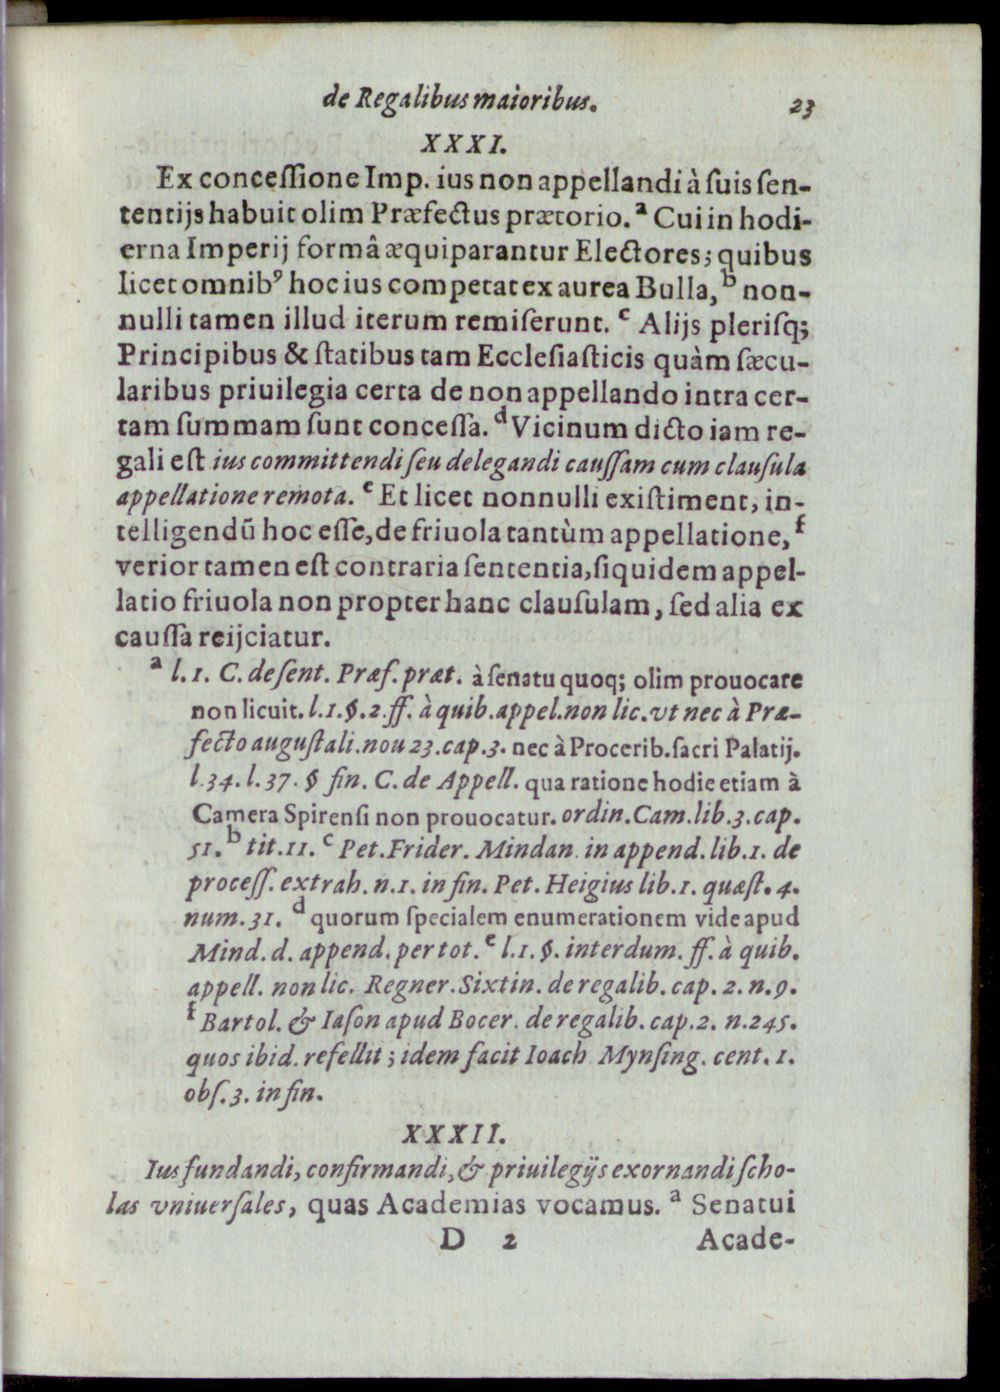 de Regalibus maioribus. 23
XXXI.
Ex concessione Imp. ius non appellandi à suis sen-
tentijs habuit olim Præfectus prætorio.ᵃ Cui in hodi-
erna Imperij formâ æquiparantur Electores; quibus
licet omnibꝰ hoc ius competat ex aurea Bulla,ᵇ non-
nulli tamen illud iterum remiserunt.ᶜ Alijs plerisq;
Principibus & statibus tam Ecclesiasticis quàm sæcu-
laribus priuilegia certa de non appellando intra cer-
tam summam sunt concessa.ᵈ Vicinum dicto iam re-
gali est ius committendi seu delegandi caussam cum clausula
appellatione remota.ᵉ Et licet nonnulli existiment, in-
telligendũ hoc esse, de friuola tantùm appellatione,ᶠ
verior tamen est contraria sententia, siquidem appel-
latio friuola non propter hanc clausulam, sed alia ex
caussa reijciatur.
ᵃ l.1. C. de sent. Præf. præt. à senatu quoq; olim prouocare
non licuit. l.1.§.2.ff. à quib.appel.non lic.vt nec à Præ-
fecto augustali.nou 23.cap.3. nec à Procerib.sacri Palatij.
l.34.l.37.§ fin. C. de Appell. qua ratione hodie etiam à
Camera Spirensi non prouocatur. ordin.Cam.lib.3.cap.
51.ᵇ tit.11.ᶜ Pet.Frider. Mindan. in append.lib.1. de
process. extrah. n.1. in fin. Pet. Heigius lib.1. quæst. 4.
num.31. ᵈ quorum specialem enumerationem vide apud
Mind. d. append. per tot.ᵉ l.1.§. interdum. ff. à quib.
appell. non lic. Regner. Sixtin. de regalib. cap. 2. n.9.
ᶠ Bartol. & Iason apud Bocer. de regalib. cap.2. n.245.
quos ibid. refellit; idem facit Ioach Mynsing. cent. 1.
obs.3. in fin.
XXXII.
Ius fundandi, confirmandi, & priuilegijs exornandi scho-
las vniuersales, quas Academias vocamus.ᵃ Senatui
D 2 Acade-